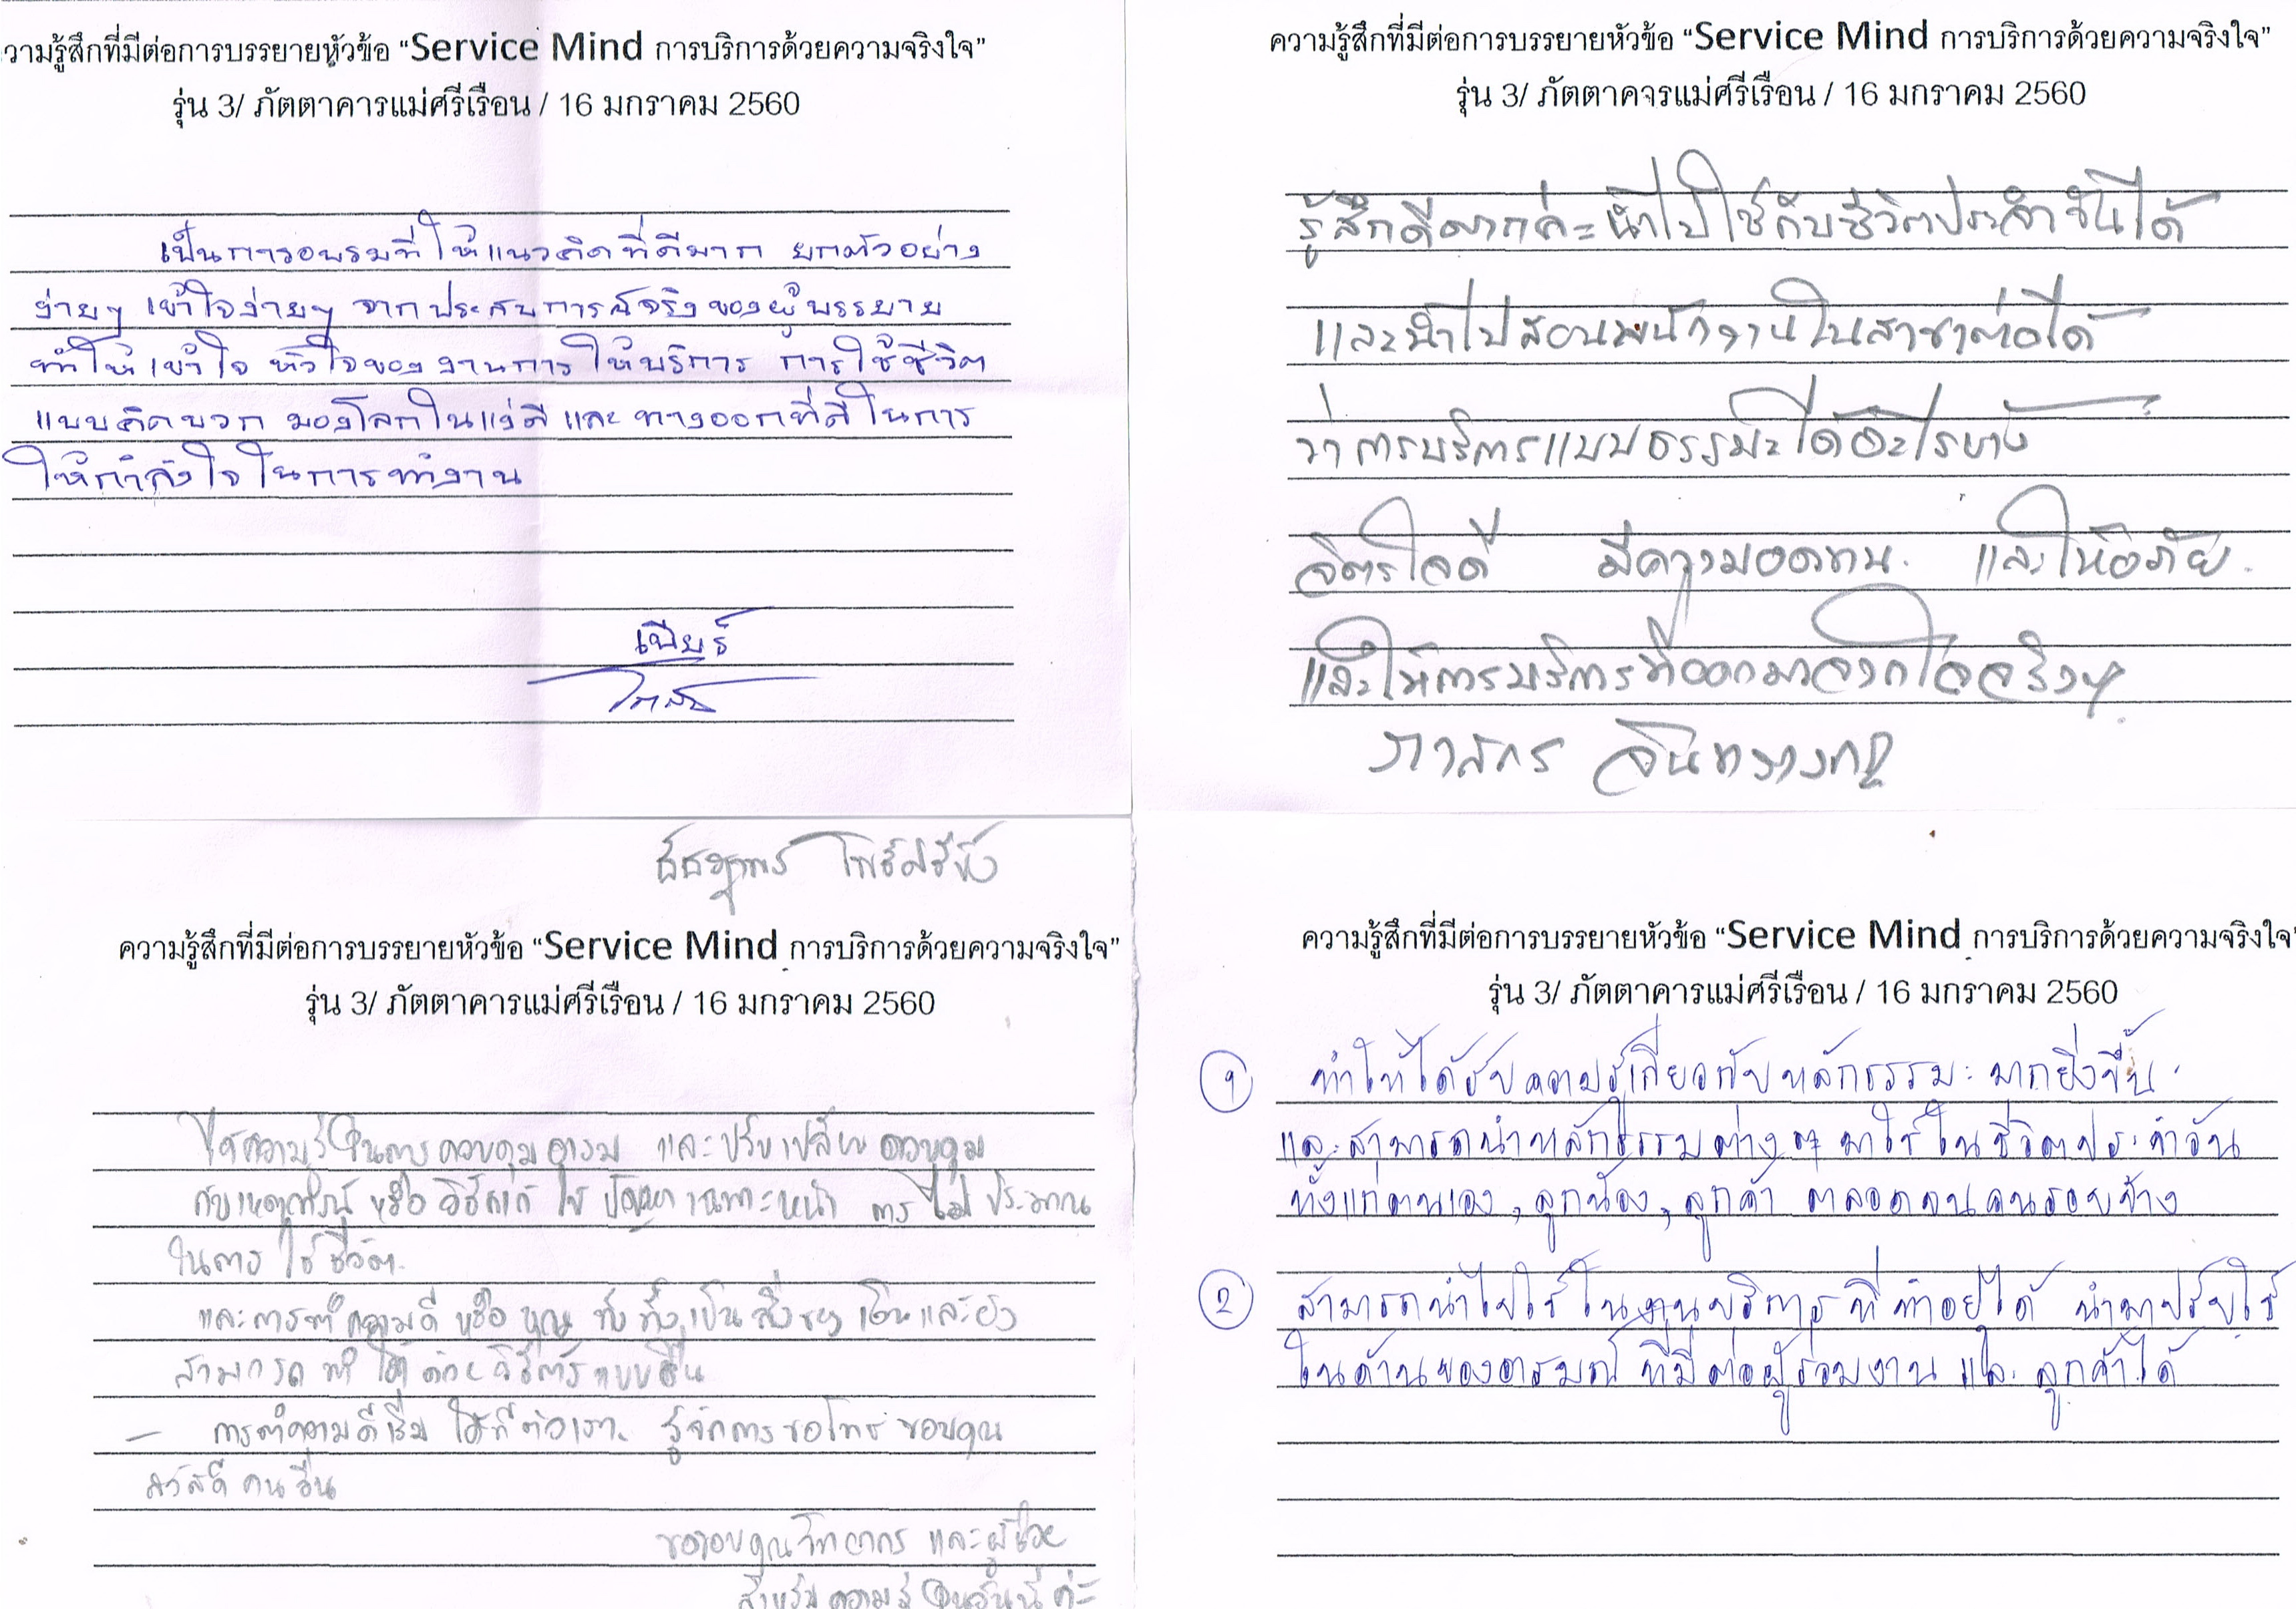 วามรู้สึกที่มีต่อการบรรยายหัวข้อ “Service Mind การบริการด้วยความจริงใจ”
รุ่น 3/ ภัตตาคารแม่ศรีเรือน / 16 มกราคม 2560
เป็นการอบรมที่ให้แนวคิดที่ดีมาก ยกตัวอย่าง
ง่ายๆ เข้าใจง่ายๆ จากประสบการณ์จริงของผู้บรรยาย
ทำให้เข้าใจ หัวใจของงานการให้บริการ การใช้ชีวิต
แบบคิดบวก มองโลกในแง่ดี และ ทางออกที่ดีในการ
ให้กำลังใจในการทำงาน
ความรู้สึกที่มีต่อการบรรยายหัวข้อ “Service Mind การบริการด้วยความจริงใจ”
รุ่น 3/ ภัตตาคจรแม่ศรีเรือน / 16 มกราคม 2560
รู้สึกดีมากค่ะ นำไปใช้กับชีวิตประจำวันได้
และนำไปสอนพนักงานในสาขาต่อได้
ว่าการบริการแบบธรรมะได้อะไรบ้าง
จิตรใจดี มีความอดทน. และให้อภัย.
และให้การบริการที่ออกมาจากใจจริงๆ
ความรู้สึกที่มีต่อการบรรยายหัวข้อ “Service Mind การบริการด้วยความจริงใจ”
รุ่น 3/ ภัตตาคารแม่ศรีเรือน / 16 มกราคม 2560
ได้ความรู้ในการควบคุมอารม และปรับเปลี่ยน ควบคุม
กับเหตุการณ์ หรือ วิธีแก้ไข ปัญหาเฉพาะหน้า การไม่ประมาท
ในการใช้ชีวิต.
และการทำความดี หรือ บุญ เป็นสิ่งของ เงิน และยัง
สามารถ ทำได้ด้วยวิธีการแบบอื่น
– การทำความดีเริ่มได้ที่ตัวเรา. รู้จักการขอโทษ ขอบคุณ
สวัสดี คนอื่น
ขอขอบคุณวิทยากร และผู้ช่วย
สำหรับความรู้ในวันนี้ค่ะ
ความรู้สึกที่มีต่อการบรรยายหัวข้อ “Service Mind การบริการด้วยความจริงใจ”
รุ่น 3/ ภัตตาคารแม่ศรีเรือน / 16 มกราคม 2560
๑ ทำให้ได้รับความรู้เกี่ยวกับหลักธรรมะมากยิ่งขึ้น
และสามารถนำหลักธรรมต่างๆ มาใช้ในชีวิตประจำวัน
ทั้งแก่ตนเอง, ลูกน้อง, ลูกค้า ตลอดจนคนรอบข้าง
2 สามารถนำไปใช้ในงานบริการที่ทำอยู่ได้ นำมาปรับใช้
ในด้านของอารมณ์ที่มีต่อผู้ร่วมงาน และ ลูกค้าได้